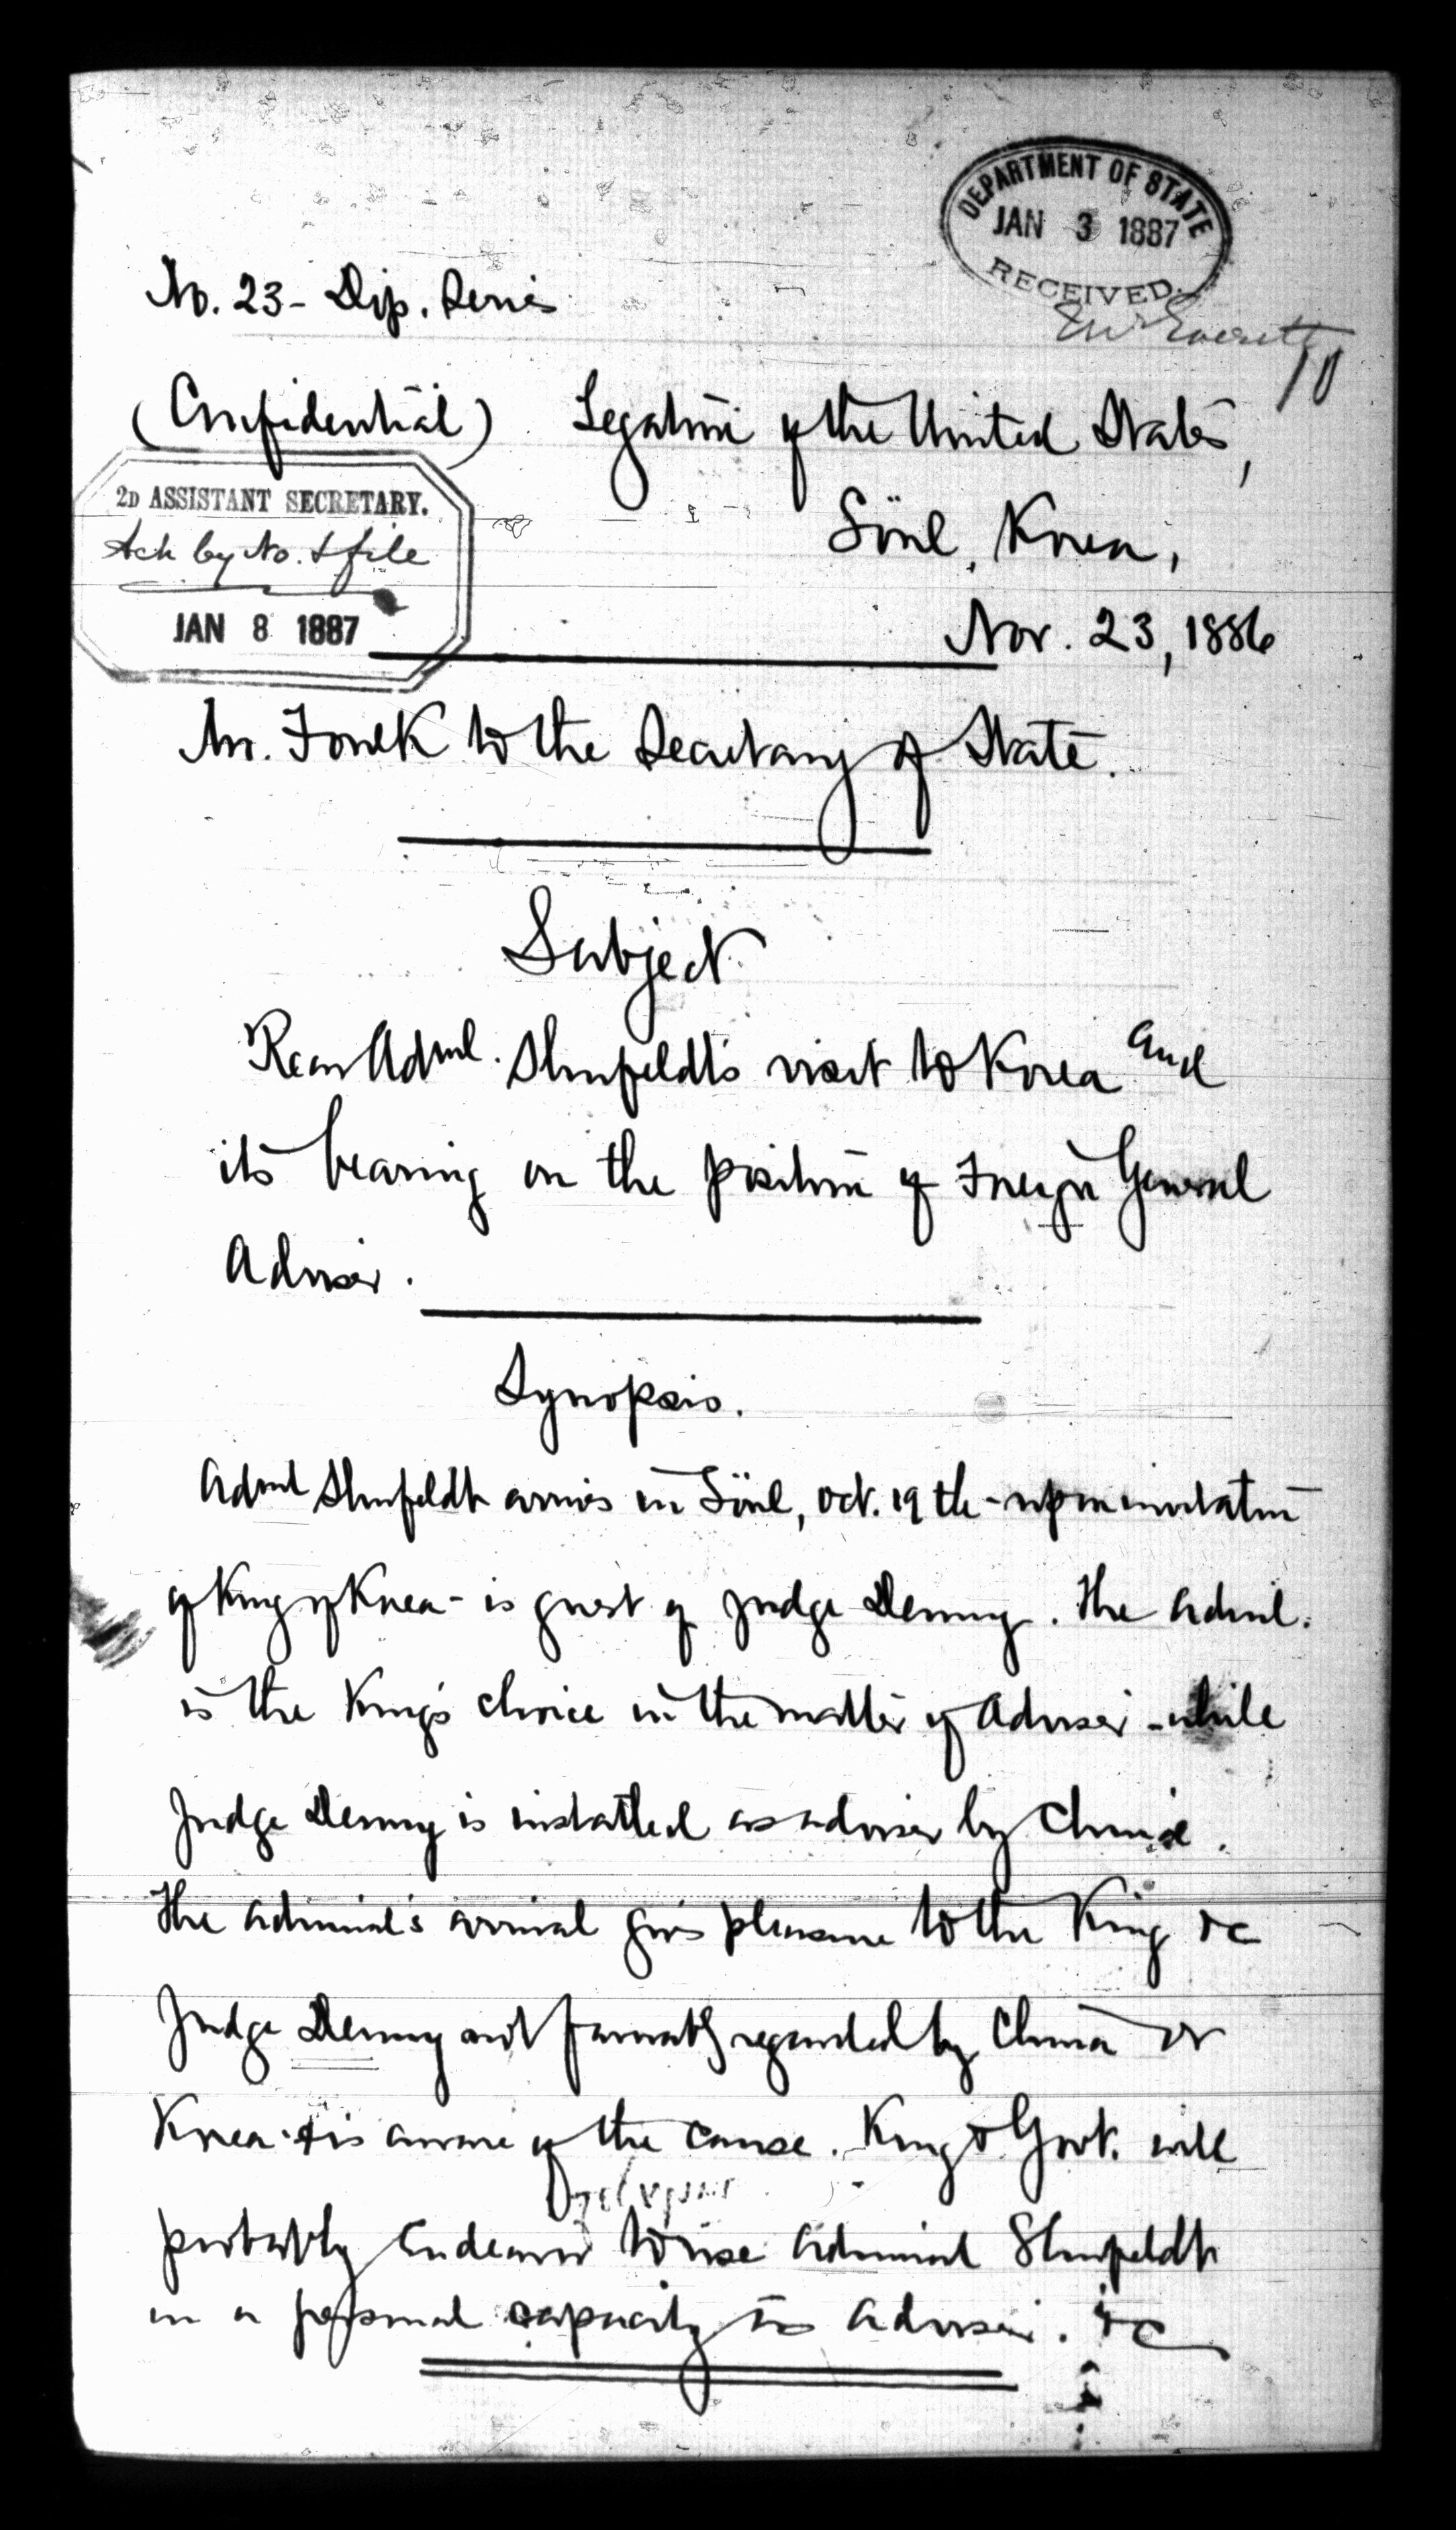 DEPARTMENT OF STATE
JAN 3 1887
RECEIVED.
No. 23 - Dip. Series
Mr Everett
(Confidential) Legation of the United States,
2D ASSISTANT SECRETARY.
Ack by No. & file
JAN 8 1887
Söul, Korea,
Nov. 23, 1886
Mr. Foulk to the Secretary of State.
Subject
Rear Adml. Shufeldt's visit to Korea and
its bearing on the position of Foreign General
Adviser.
Synopsis.
Adml Shufeldt arrives in Söul, Oct. 19th - upon invitation
of King of Korea - is guest of Judge Denny. The Adml.
is the King's choice in the matter of Adviser - while
Judge Denny is installed as adviser by China.
The admiral's arrival gives pleasure to the King &c
Judge Denny not favorably regarded by China or
Korea & is aware of the cause. King & Govt. will
probably endeavor to use Admiral Shufeldt
in a personal capacity as Adviser. &c